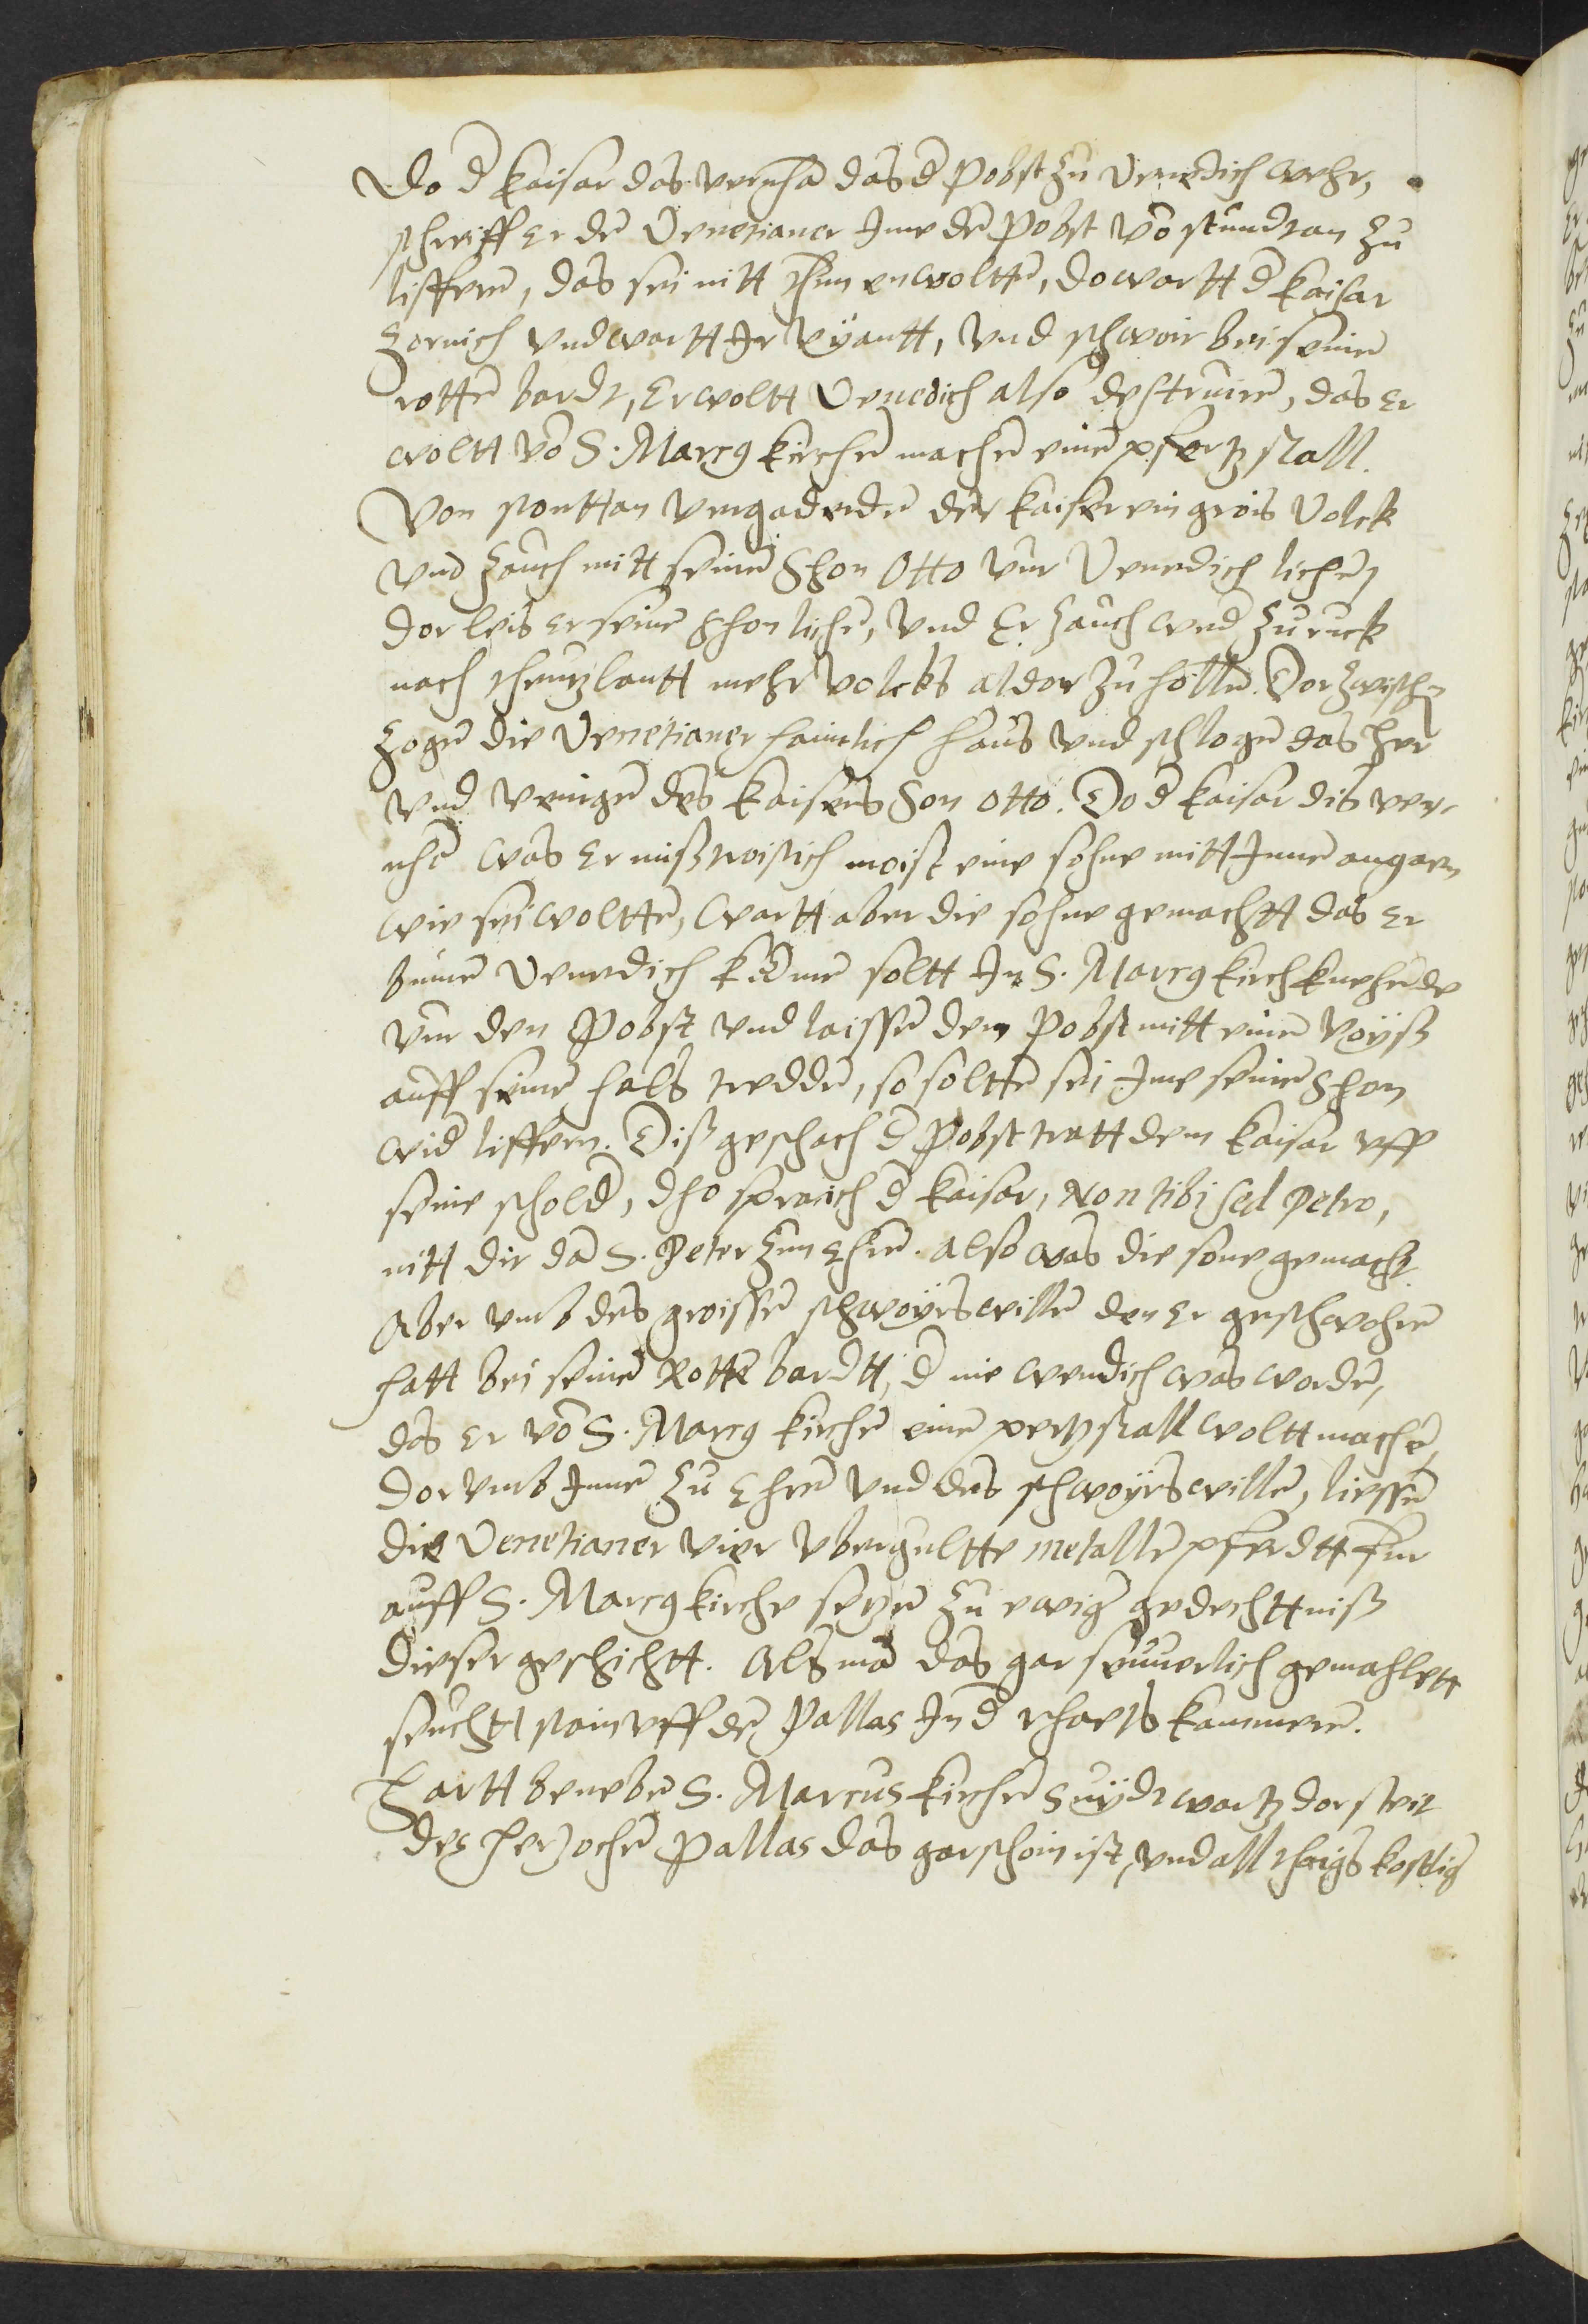 Do d kaisar das vernha das d Pobst zu Venedich wehr,
schreiff er de Venetianer Jme de Pobst vo stundt an zu
liffere, das sei nitt thun enwoltte, do wartt d kaisar
zornich vnd wartt Jr vyantt, vnd schwoir bei seine
rotte bardt, Er woltt Venedich also destruire, das er
woltt vo S. Marcg kirche mache eine pfertz stall.
Von stontt an vergaderde der kaiser ein grois Volck
vnd zauch mitt seine Shon Otto vur Venedich liche,
dor leis er seine Shon liche, vnd Er zauch wed zu ruck
nach theutzlantt mehr volcks aldor zu holle. Dor zwische
zoge die Venetianer haimlich haus vnd schloge das her
vnd venge des kaisers Son Otto. Do d kaisar dis ver,
nhe was er mißtroistich moist eine sohne mitt Jnne angaen
wie sei woltte, Wartt aber die sohne gemachtt das er
binne Venedich kome soltt Jn S. Marcg kirch knehede
vur den Pobst vnd laisse dem Pobst mitt eine voyß
auff seine hals tredde, so soltte sei Jme seine Shon
wid liffern. Diß geschach d Pobst tratt dem kaisar vff
seine schold, dho sprach d kaisar, Non tibi sed Petro,
nitt dir da S. Peter zun Ehre. Also was die sone gemacht
Aber vmb des groisse schwoyrs wille den er geschwohre
hatt bei seine Rotte bardtt, d nie wendich was worde,
das er vo S. Marcg kirche eine pertzstall woltt mache,
dor vmb Jnne zu Ehre vnd des schwoyrs wille, liesse
die Venetianer vier vbergultte metalle pferdtt hin
auff S. Marcg kirche setze zu ewig gedechttniß
dieser geschichtt. Als ma das gar seuuerlich gemahlett
seuchtt stain vff de Pallas Jn d rhaets kammere.
Hartt benebe S. Marcus kirche suydt wartz dor steit
des hertzoche Pallas das gar schoin ist, vnd all theigs kostlig